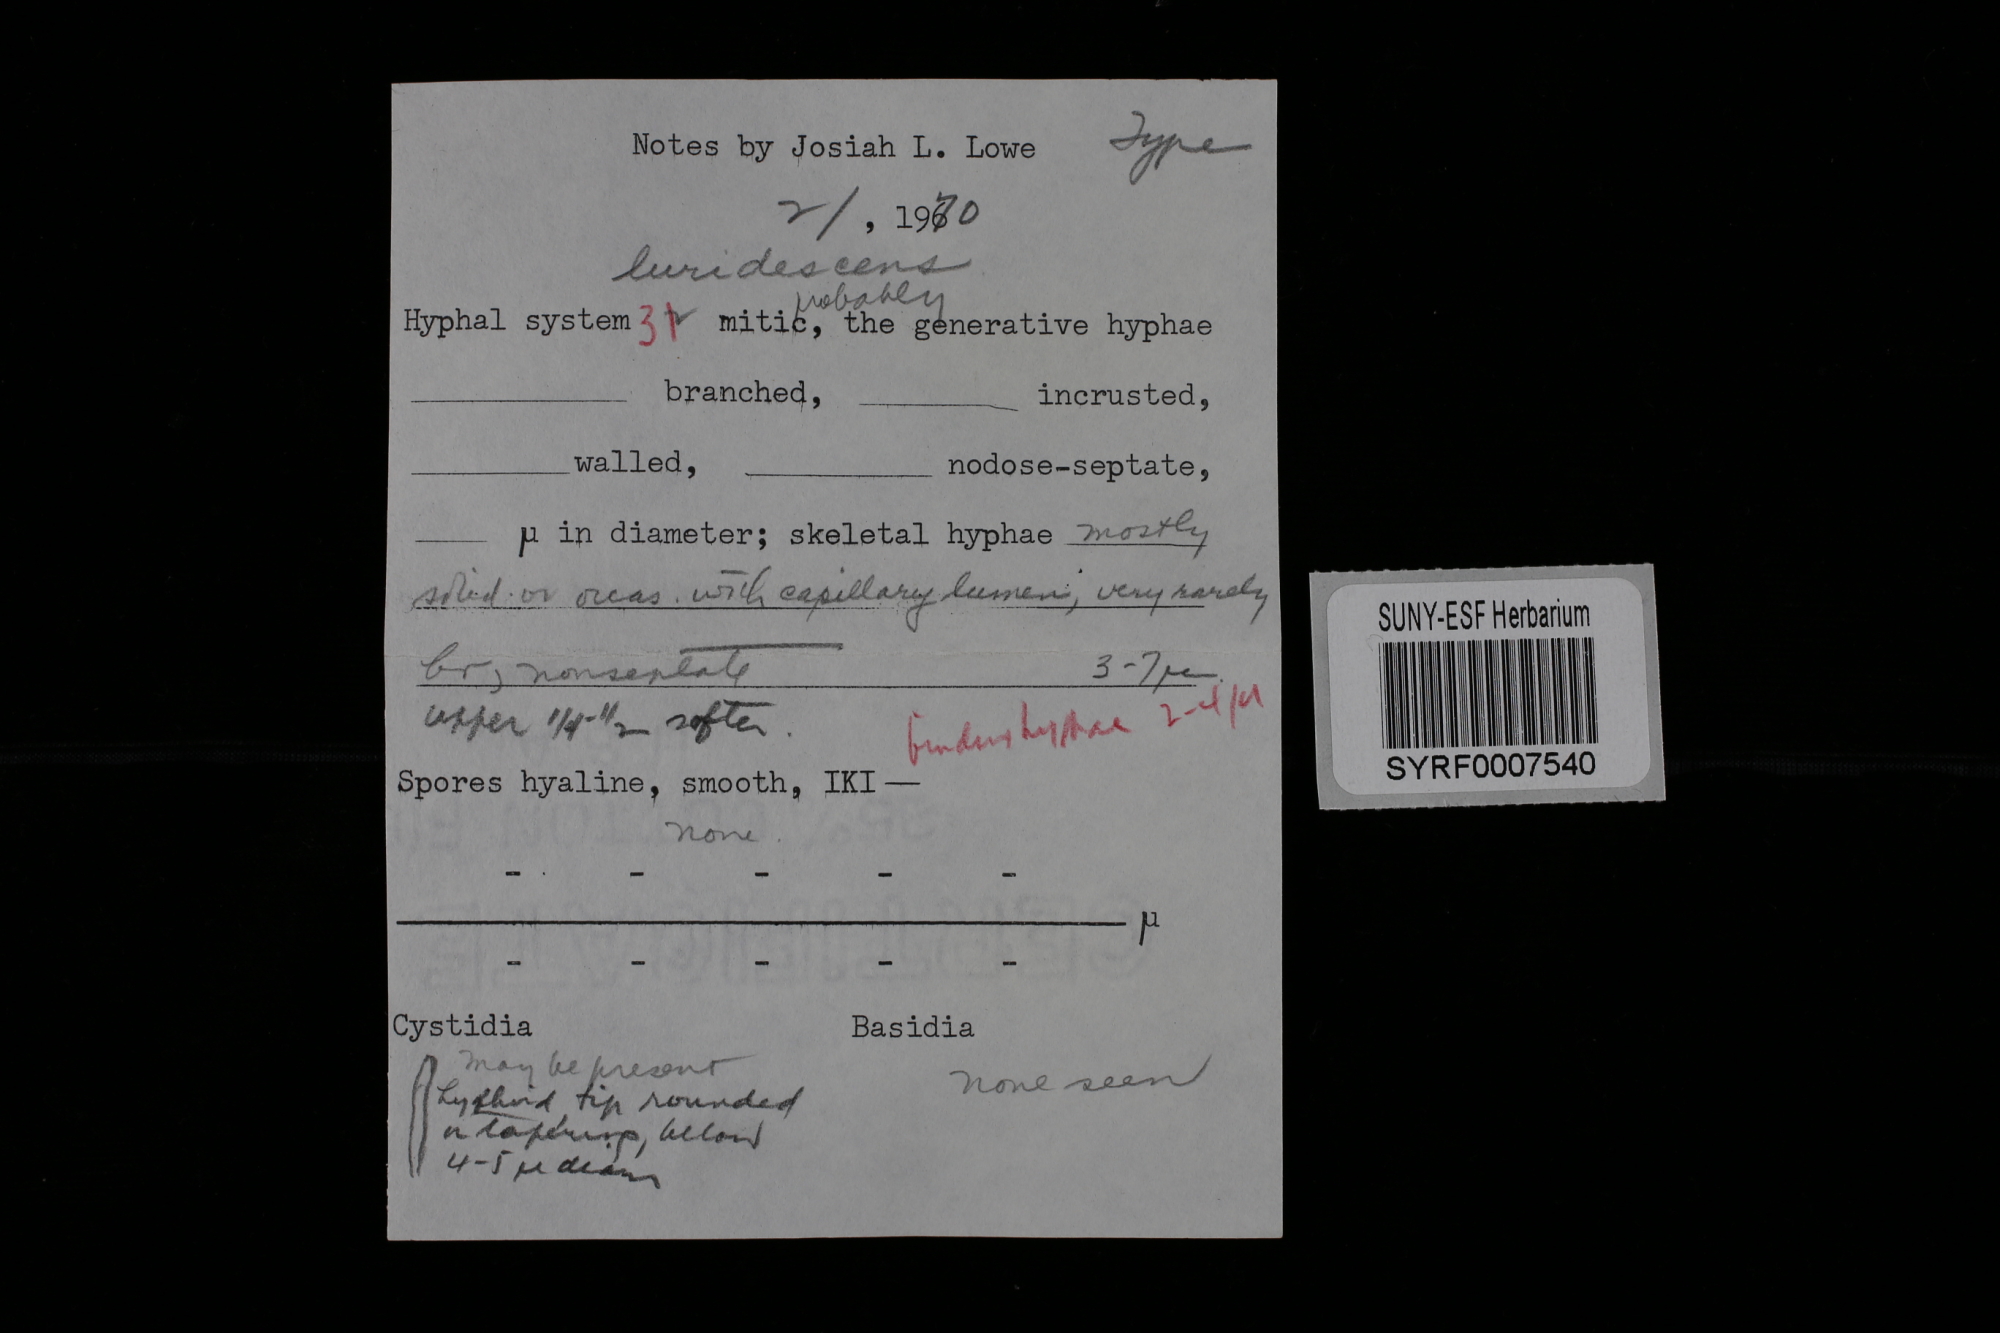 Notes by Josiah L. Lowe Type
2/ , 1970
luridescens
probably
Hyphal system 3 mitic, the generative hyphae
branched, incrusted,
walled, nodose-septate,
µ in diameter; skeletal hyphae mostly
solid or occas. with capillary lumen, very rarely
br, nonseptate 3-7µ
upper 1/4-1/2 softer.
binding hyphae 2-4µ
Spores hyaline, smooth, IKI —
none.
- - - - -
µ
- - - - -
Cystidia Basidia
may be present
none seen
hyphoid, tip rounded
or tapering, below
4-5 µ diam
SUNY-ESF Herbarium
SYRF0007540